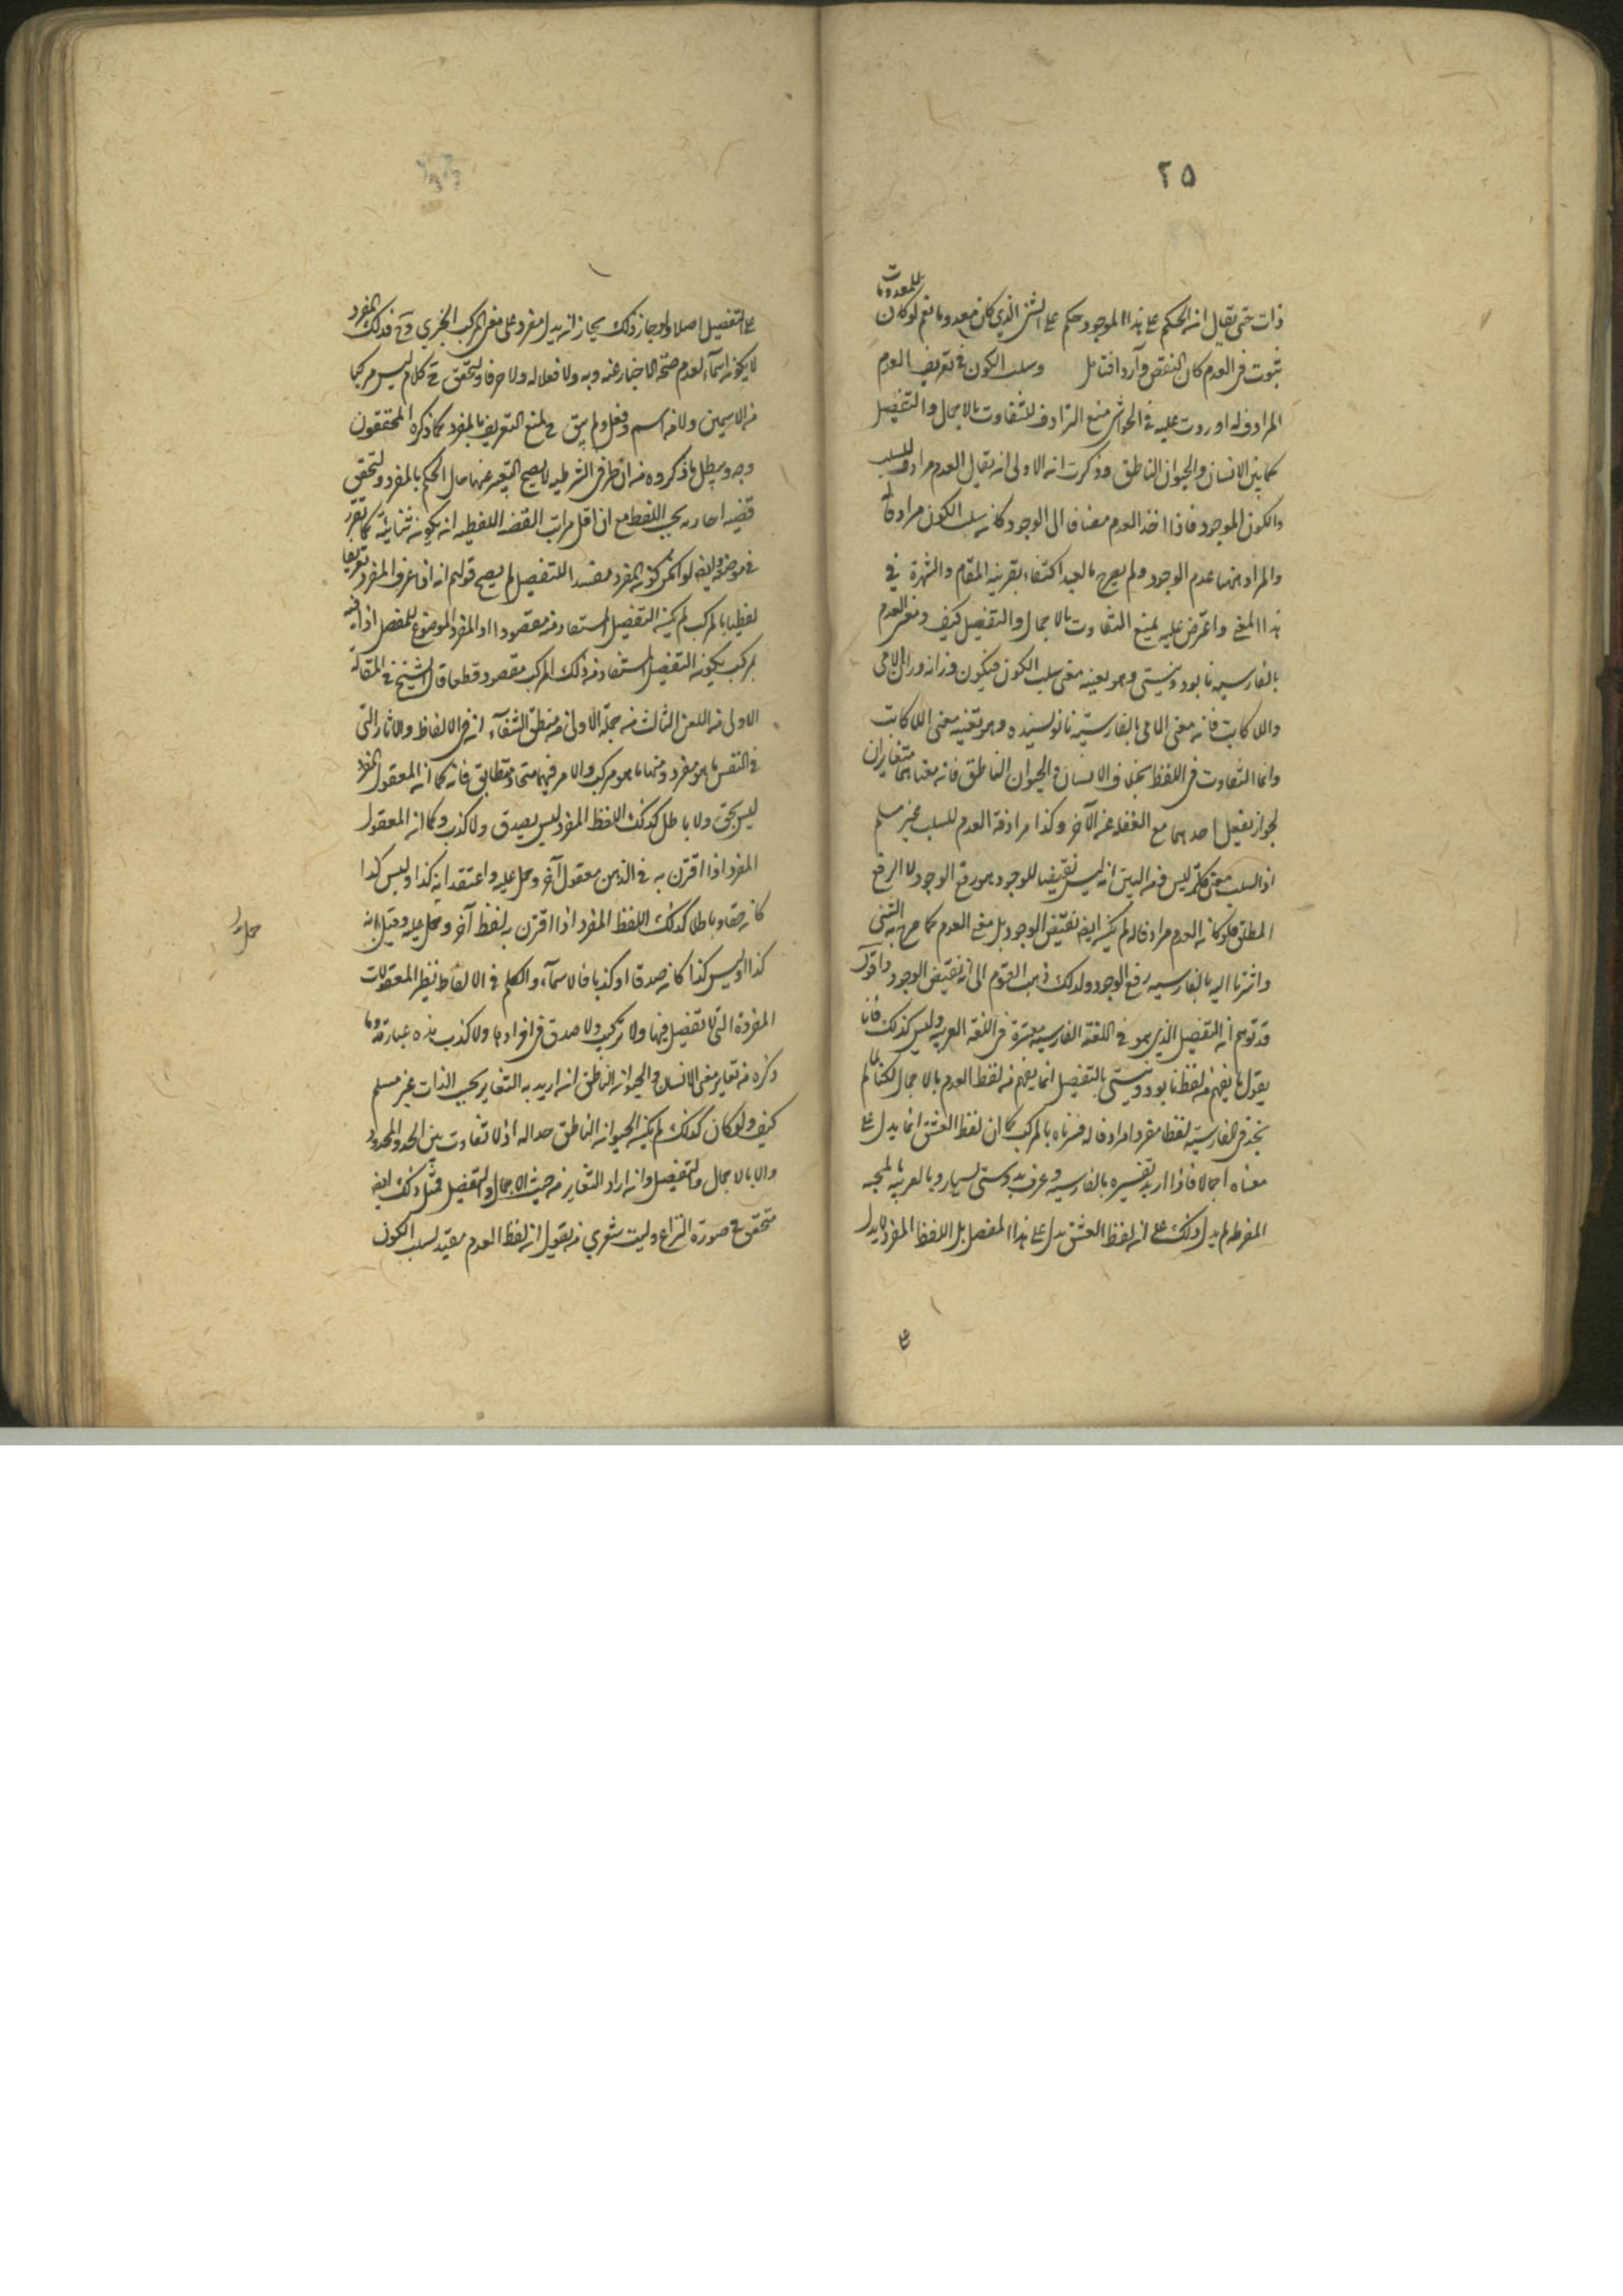 ٢٥
للمعدومات
ذات حتى يقال ان الحكم على هذا الموجود حكم على الشئ الذي كان معدوما نعم لو كان
ثبوت فى العدم كان النقض وآردا فتامل وسلب الكون فى تعريف العدم
المرادف له اوردت عليه فى الحواشى منع الترادف للتفاوت بالاجمال والتفصيل
كما بين الانسان والحيوان الناطق وذكرت ان الاولى ان يقال العدم مرادف للسلب
والكون للوجود فاذا اخذ العدم مضافا الى الوجود كان سلب الكون مرادفا له
والمراد ههنا عدم الوجود ولم يصرح بالقيد اكتفاء بقرينة المقام والشهرة فى
هذا المعنى واعترض عليه بمنع التفاوت بالاجمال والتفصيل كيف ومعنى العدم
بالفارسيه نابود ونيستى وهو بعينه معنى سلب الكون فيكون وزانه وزان اللامى
واللاكاتب فانه معنى الامى بالفارسيّة نانويسنده وهو بعينه معنى اللاكاتب
وانما التفاوت فى اللفظ بخلاف الانسان والحيوان الناطق فان معناهما متغايران
لجواز تعقل احدهما مع الغفلة عن الآخر وكذا مرادفة العدم للسلب غير مسلم
اذ السلب معنى كلمة ليس فمن البين ان ليس نقيضا للوجود هو رفع الوجود لا الرفع
المطلق فلو كان العدم مرادفا له لم يكن ايضا نقيض الوجود بل معنى العدم كما صرح به الشئ
واشرنا اليه بالفارسيه رفع الوجود ولذلك ذهب القوم الى انه نقيض الوجود واقول
قد توهم ان التفصيل الذي هو فى اللغة الفارسيه معتبرة فى اللغة العربيه وليس كذلك فانا
نقول ما يفهم من لفظ نابود ونيستى بالتفصيل انما يفهم من لفظ العدم بالاجمال لكنا لما لم
نجد فى الفارسيّة لفظا مفردا مرادفا له فسرناه بالمركب كما ان لفظ العشق انما يدل على
معناه اجمالا فاذا اريد تفسيره بالفارسيه وعرف بدوستى بسيار وبالعربيه بالمحبه
المفرطه لم يدل ذلك على ان لفظ العشق يدل على هذا المفصل بل اللفظ المفرد لا يدل
على
على التفصيل اصلا ولو جاز ذلك لجاز ان يدل مفرد على معنى المركب الخبري وح فذلك المفرد
لا يكون اسماء لعدم صحّة الاخبار عنه وبه ولا فعلا له ولا حرفا ولتحقق ح كلام ليس مركبا
من الاسمين ولا من اسم وفعل ولم يبق ح لمنع التعريف بالمفرد كما ذكره المحققون
وجه ويبطل ما ذكروه من ان طرفى الشرطيه لا يصح التعبير عنهما حال الحكم بالمفرد ولتحقق
قضيه احاديه بحسب اللفظ مع ان اقل مراتب القضيه اللفظيه ان يكون ثنائية كما تقرر
فى موضعه وايضا لو امكن كون المفرد مفيدا للتفصيل لم يصح قولهم انه اذا عرف المفرد تعريفا
لفظيا بالمركب لم يكن التفصيل المستفاد منه مقصودا اذ المفرد الموضوع للمفصل اذا فسر
بمركب يكون التفصيل المستفاد من ذلك المركب مقصودا قطعا قال الشيخ فى المقالة
الاولى من الفن الثالث من جملة الاولى من منطق الشفآء ان من الالفاظ والاثار التى
فى النفس ما هو مفرد ومنها ما هو مركب والامر فيهما متحاذ متطابق فانه كما ان المعقول المفرد
ليس بحق ولا باطل كذلك اللفظ المفرد ليس بصدق ولا كذب وكما ان المعقول
المفرد اذا اقترن به فى الذهن معقول آخر وحمل عليه واعتقد انه كذا وليس كذا
كان حقا وباطلا كذلك اللفظ المفرد اذا اقترن به لفظ آخر وحمل عليه وقيل انه
كذا او ليس كذا كان صدقا او كذبا فالاسمآء والكلم فى الالفاظ نظير المعقولات
المفردة التى لا تفصيل فيها ولا تركيب ولا صدق فى افرادها ولا كذب هذه عبارته وما
ذكره من تغاير معنى الانسان والحيوان الناطق ان اريد به التغاير بحسب الذات غير مسلم
كيف ولو كان كذلك لم يكن الحيوان الناطق حدا له اذ لا تفاوت بين الحد والمحدود
والا بالاجمال والتفصيل وان اراد التغاير من حيث الاجمال والتفصيل فمثل ذلك ايضا
متحقق فى صورة النزاع وليت شعري من يقول ان لفظ العدم مفيد لسلب الكون